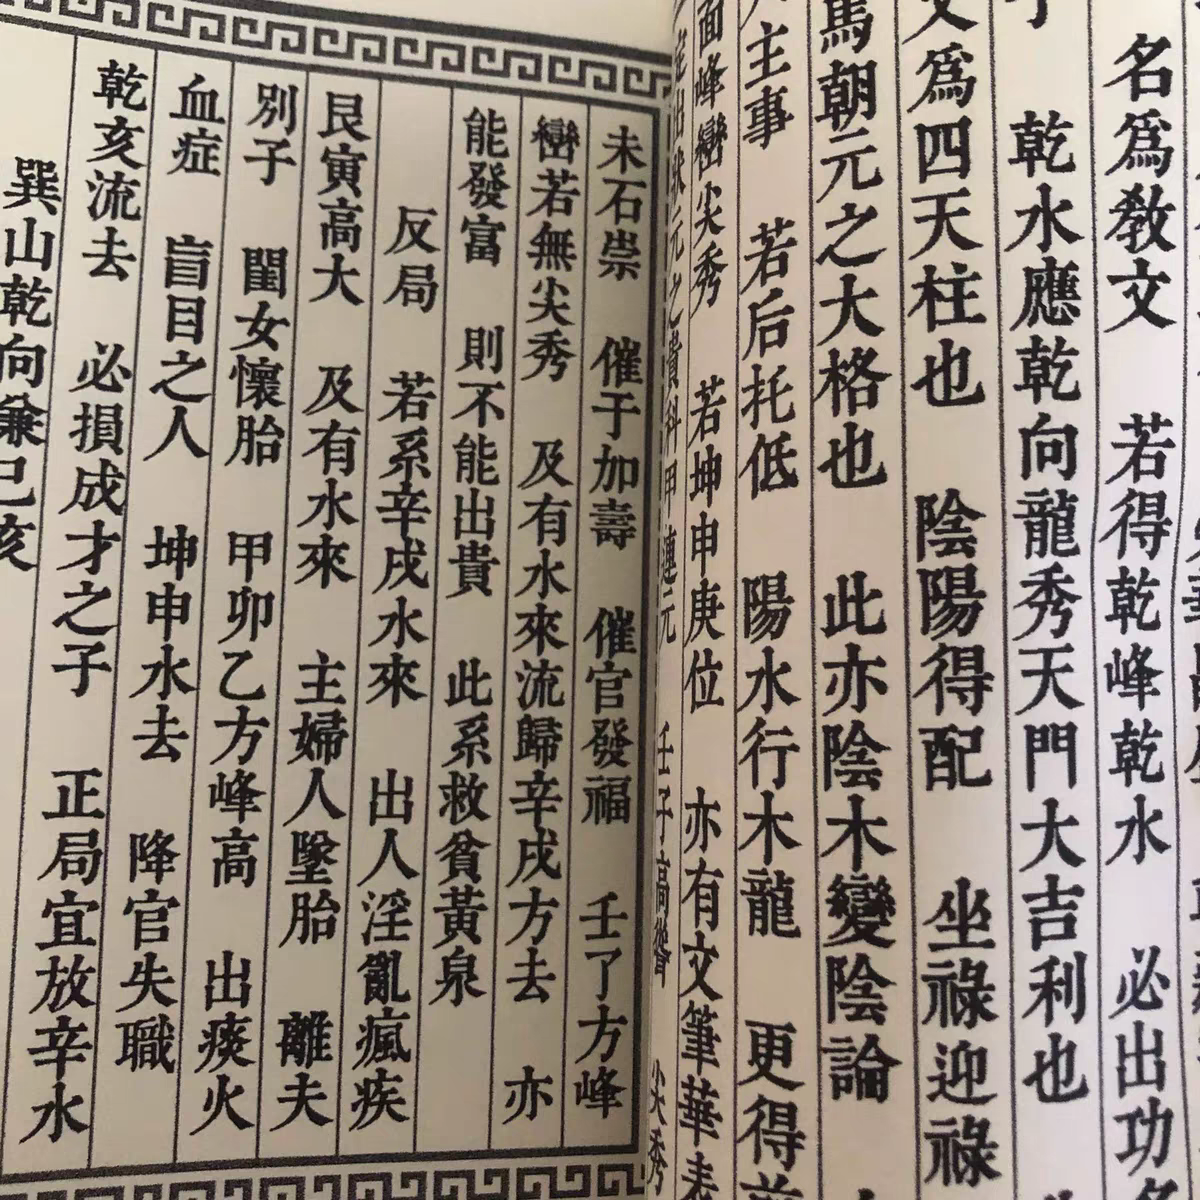 名爲教文 若得乾峰乾水 必出功名
乾水應乾向龍秀天門大吉利也
文爲四天柱也 陰陽得配 坐祿迎祿
馬朝元之大格也 此亦陰木變陰論
人主事 若后托低 陽水行木龍 更得
面峰巒尖秀 若坤申庚位 亦有文筆華表
定出狀元之貴科甲連元 壬子高聳 尖秀
未石崇 催于加壽 催官發福 壬了方峰
巒若無尖秀 及有水來流歸辛戌方去 亦
能發富 則不能出貴 此系救貧黃泉
反局 若系辛戌水來 出人淫亂瘋疾
艮寅高大 及有水來 主婦人墜胎 離夫
別子 閨女懷胎 甲卯乙方峰高 出痰火
血症 盲目之人 坤申水去 降官失職
乾亥流去 必損成才之子 正局宜放辛水
巽山乾向兼巳亥